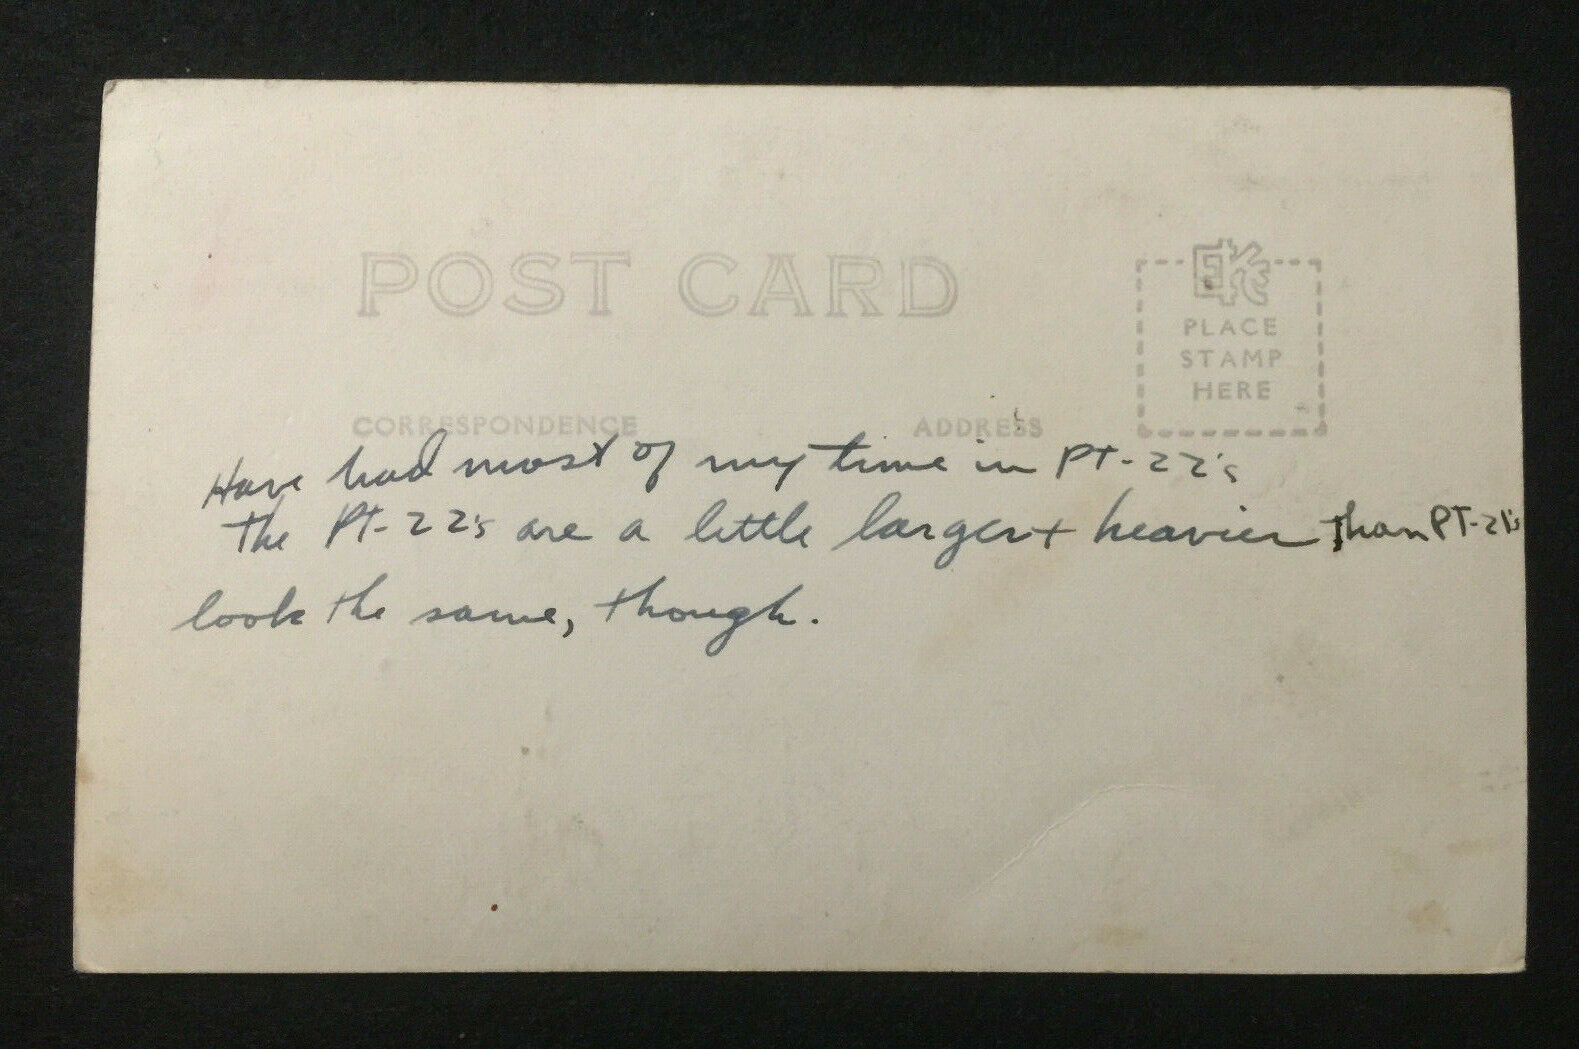 POST CARD
EKC
PLACE
STAMP
HERE
CORRESPONDENCE ADDRESS
Have had most of my time in PT-22's
The PT-22's are a little larger + heavier than PT-21's
look the same, though.